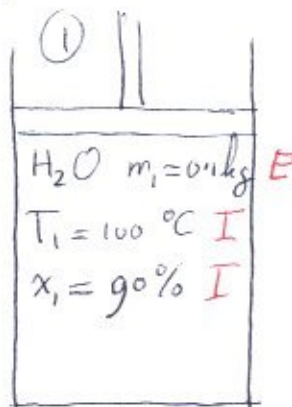 ①
H₂O m₁ = 0.1 kg E
T₁ = 100 °C I
x₁ = 90% I